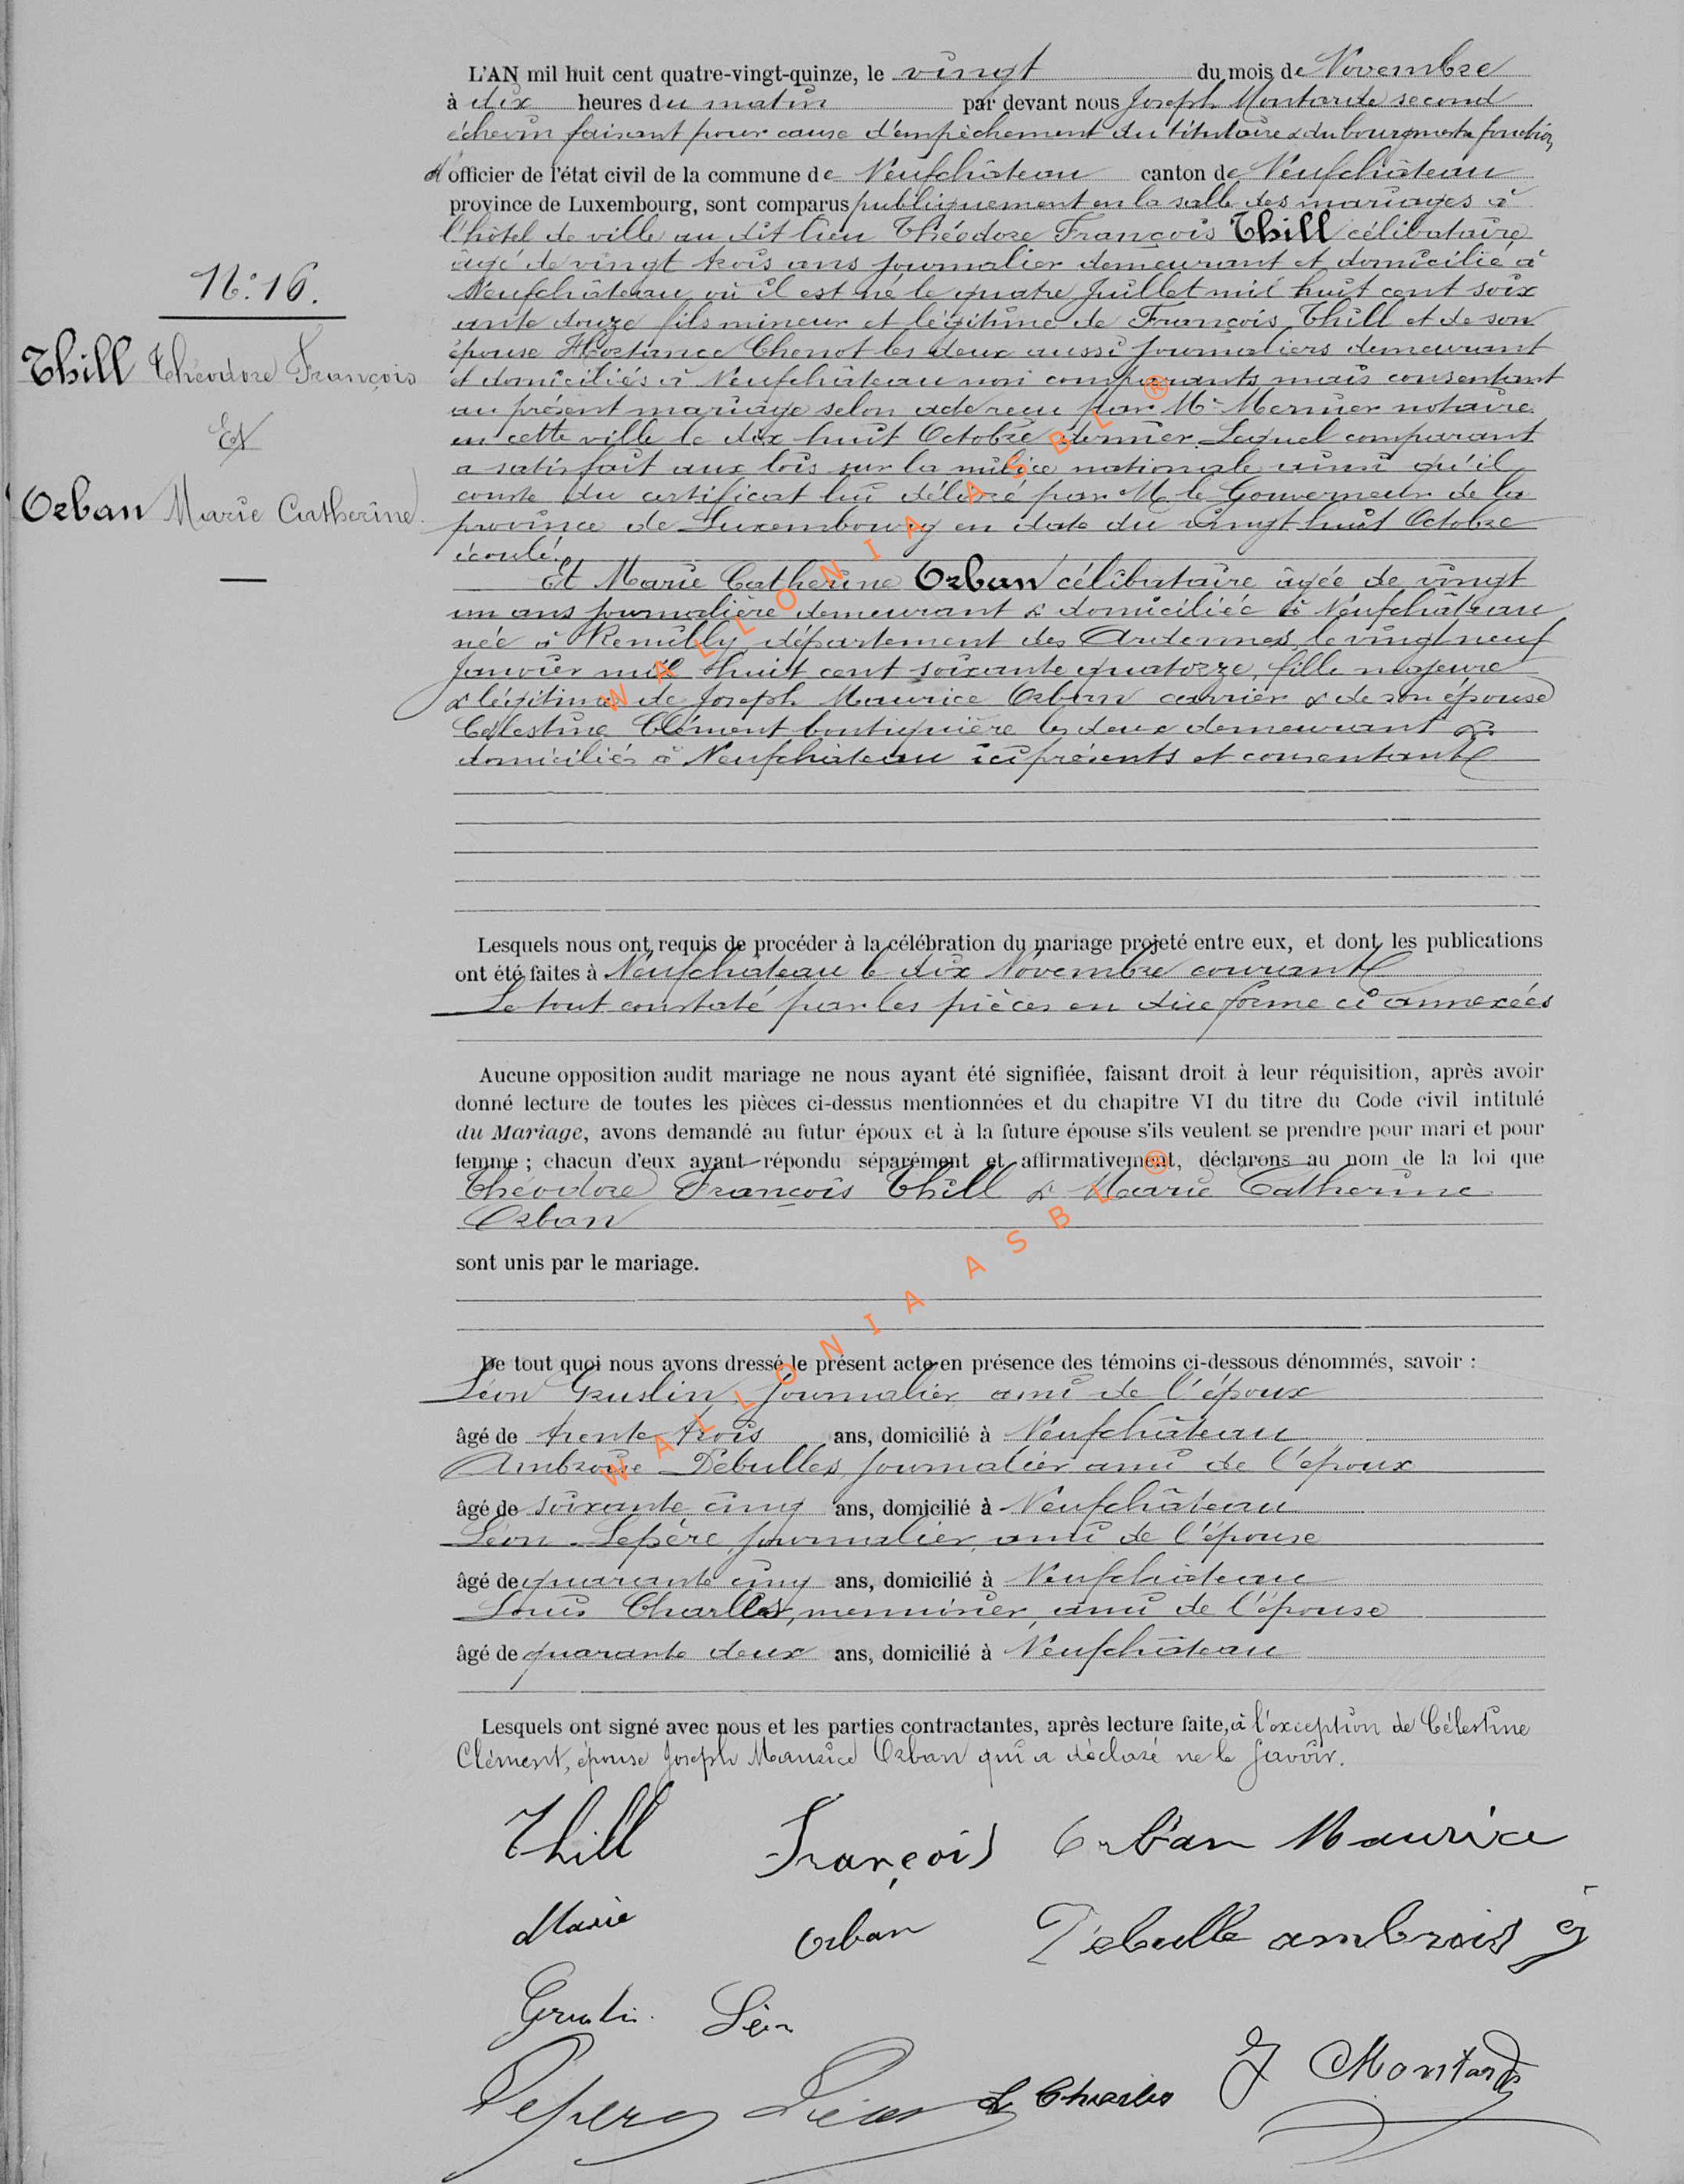 L'AN mil huit cent quatre-vingt-quinze, le vingt du mois de Novembre
à dix heures du matin par devant nous Joseph Montarde second
échevin faisant pour cause d'empêchement du titulaire & du bourgmestre fonction
d'officier de l'état civil de la commune de Neufchâteau canton de Neufchâteau
province de Luxembourg, sont comparus publiquement en la salle des mariages à
l'hôtel de ville au dit lieu Théodore François Thill célibataire
âgé de vingt trois ans journalier demeurant et domicilié à
Neufchâteau où il est né le quatre Juillet mil huit cent soix
ante douze fils mineur et légitime de François Thill et de son
épouse Hortance Chenot les deux aussi journaliers demeurant
et domiciliés à Neufchâteau non comparants mais consentant
au présent mariage selon acte reçu par Me Mernier notaire
en cette ville le dix huit Octobre dernier. Lequel comparant
a satisfait aux lois sur la milice nationale ainsi qu'il
conste du certificat lui délivré par M le Gouverneur de la
province de Luxembourg en date du vingt huit Octobre
écoulé.
Et Marie Catherine Orban célibataire âgée de vingt
un ans journalière demeurant & domiciliée à Neufchâteau
née à Remilly, département des Ardennes, le vingt neuf
Janvier mil huit cent soixante quatorze, fille majeure
& légitime de Joseph Maurice Orban carrier & de son épouse
Célestine Clément boutiquière les deux demeurant &
domiciliés à Neufchâteau ici présents et consentant
N°. 16.
Thill Théodore François
Et
Orban Marie Catherine
Lesquels nous ont requis de procéder à la célébration du mariage projeté entre eux, et dont les publications
ont été faites à Neufchâteau le dix Novembre courant
Le tout constaté par les pièces en due forme ci annexées
Aucune opposition audit mariage ne nous ayant été signifiée, faisant droit à leur réquisition, après avoir
donné lecture de toutes les pièces ci-dessus mentionnées et du chapitre VI du titre du Code civil intitulé
du Mariage, avons demandé au futur époux et à la future épouse s'ils veulent se prendre pour mari et pour
femme ; chacun d'eux ayant répondu séparément et affirmativement, déclarons au nom de la loi que
Théodore François Thill & Marie Catherine
Orban
sont unis par le mariage.
De tout quoi nous avons dressé le présent acte en présence des témoins ci-dessous dénommés, savoir :
Léon Gruslin, journalier ami de l'époux
âgé de trente trois ans, domicilié à Neufchâteau
Ambroise Débulles, journalier ami de l'époux
âgé de soixante cinq ans, domicilié à Neufchâteau
Léon Lepère, journalier, ami de l'épouse
âgé de quarante cinq ans, domicilié à Neufchâteau
Louis Charles, menuisier, ami de l'épouse
âgé de quarante deux ans, domicilié à Neufchâteau
Lesquels ont signé avec nous et les parties contractantes, après lecture faite, à l'exception de Célestine
Clément, épouse Joseph Maurice Orban qui a déclaré ne le savoir.
Thill François Orban Maurice
Marie Orban Débulle ambrois
Gruslin Léon
Lepere Léon L Charles J Montarde
WALLONIA ASBL ®
WALLONIA ASBL ®